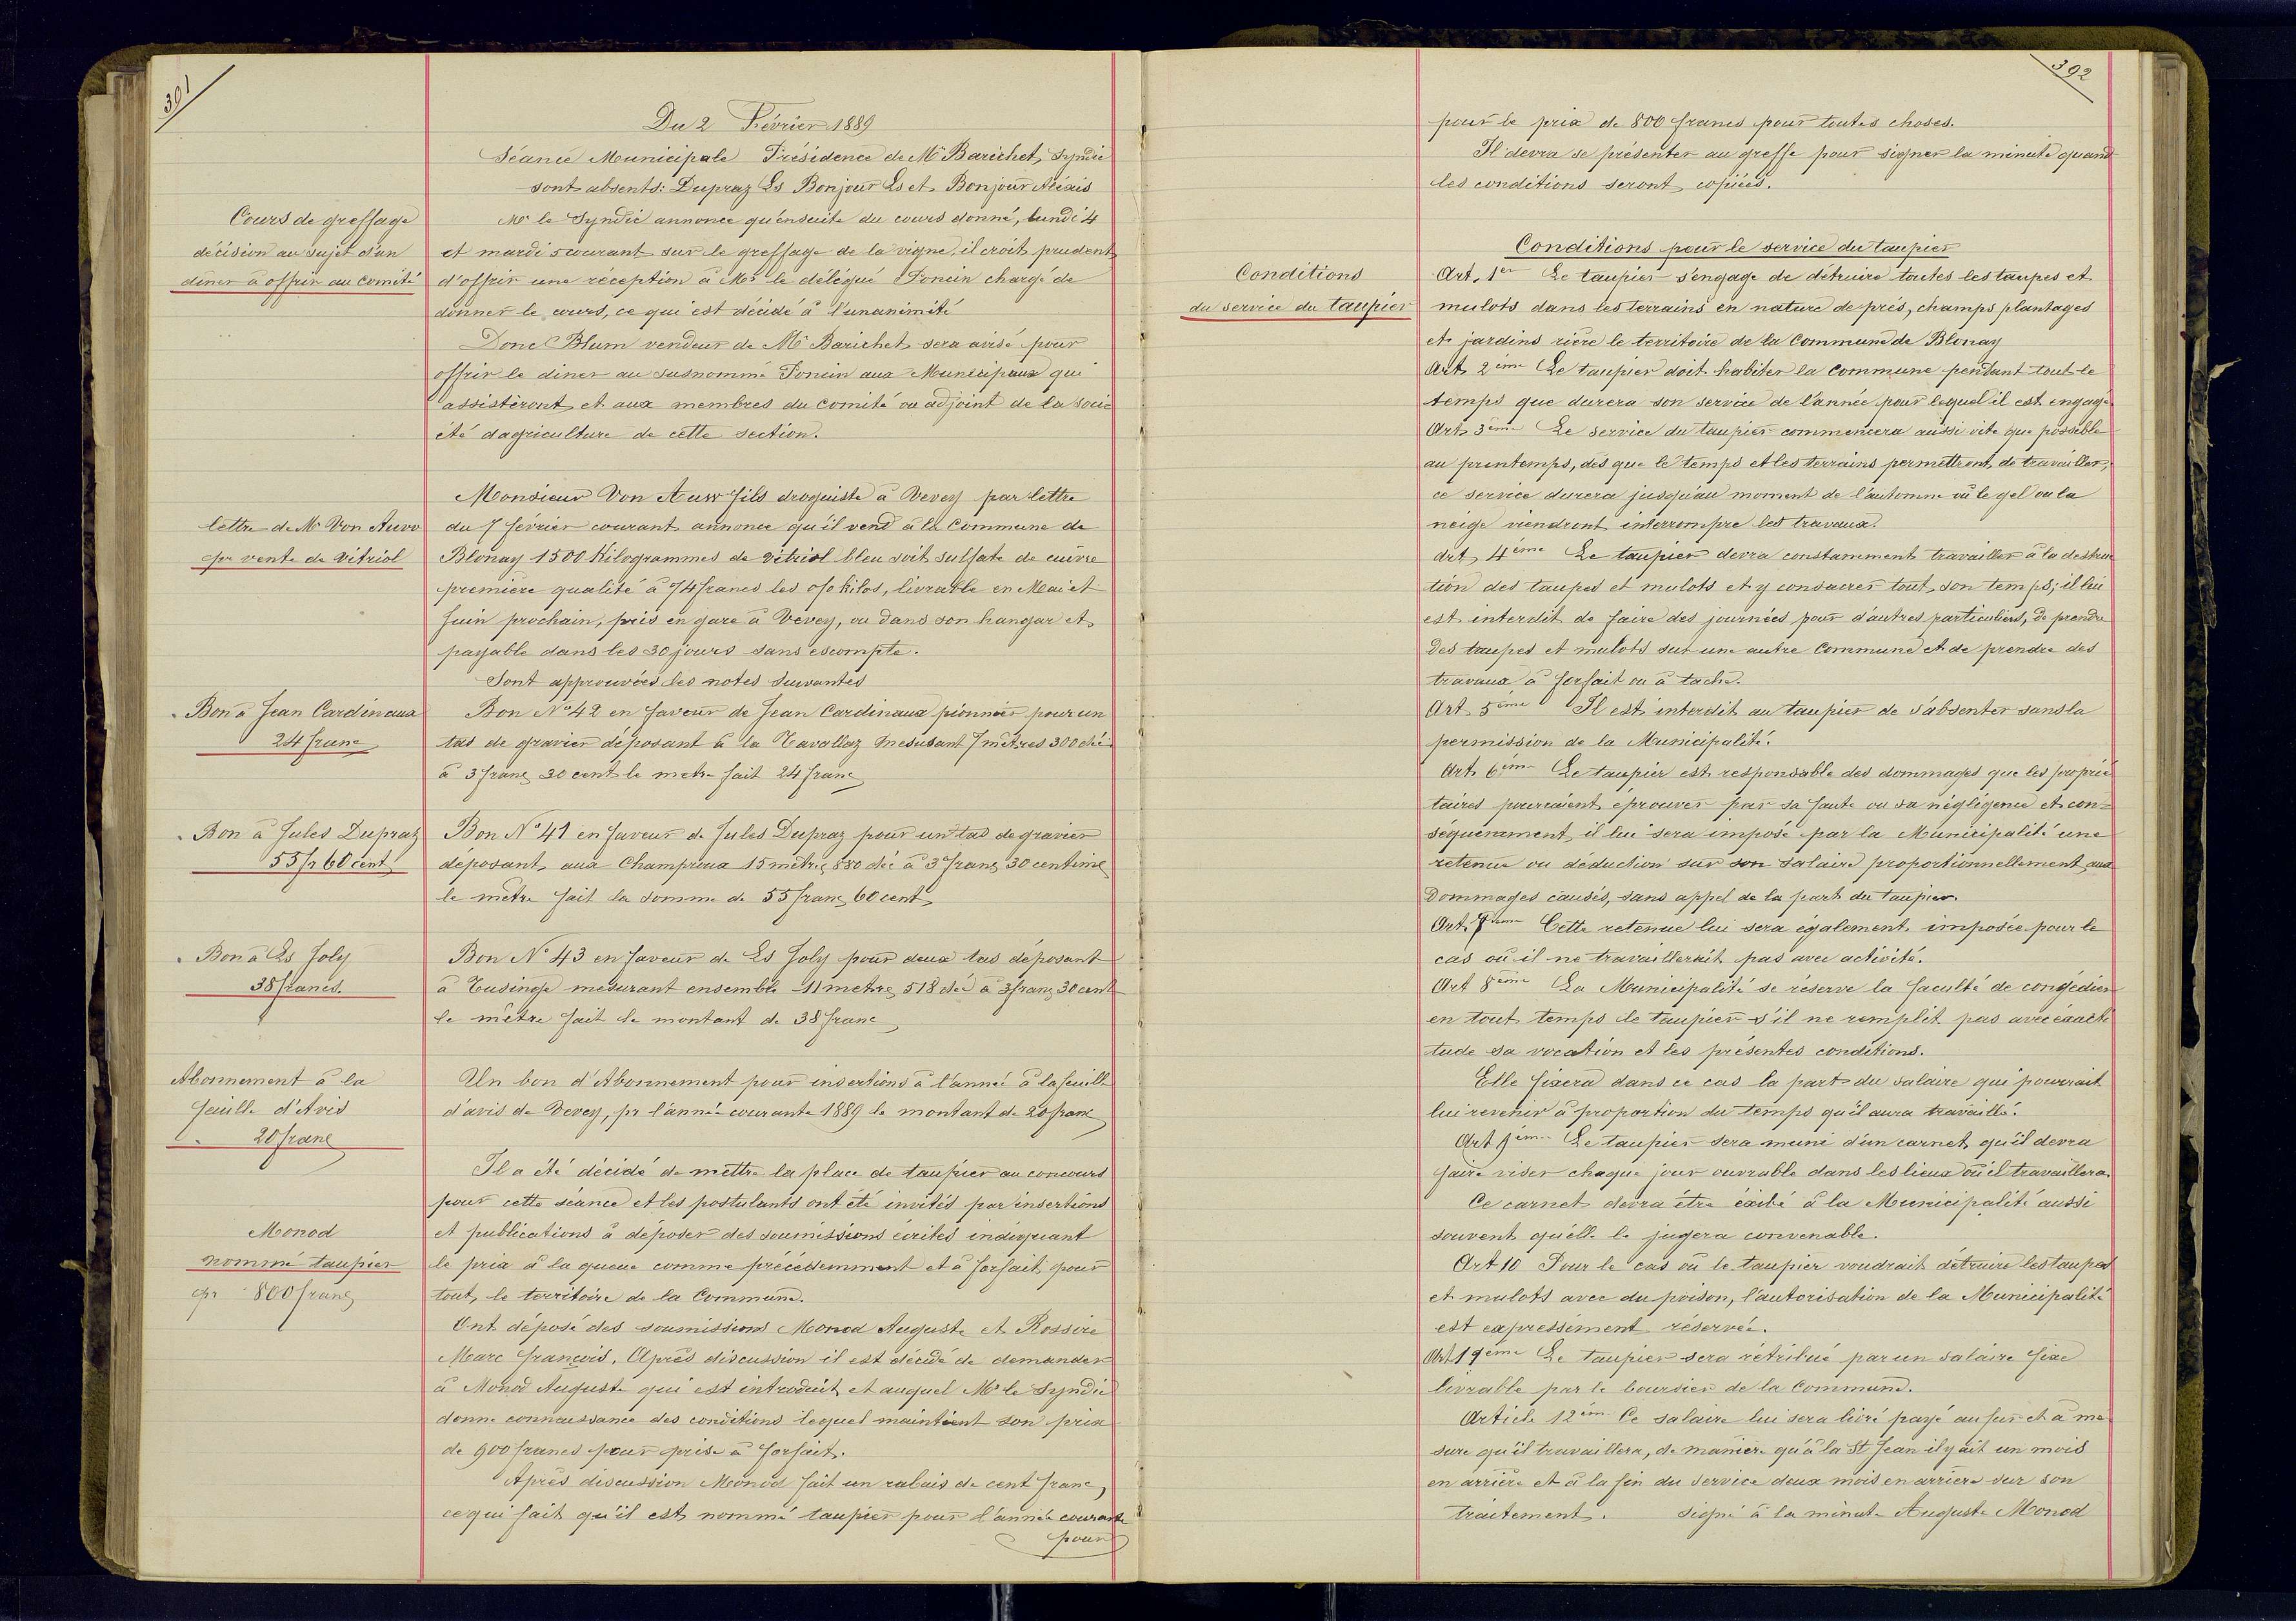 391
Du 2 Février 1889
Séance Municipale Présidence de Mr Barichet, Syndic
sont absents: Dupraz Ls Bonjour Ls et Bonjour Alexis
Cours de greffage
décision au sujet d'un
diner à offrir au comité
Mr le Syndic annonce qu'ensuite du cours donné, lundi 4
et mardi 5 courant sur le greffage de la vigne, il croit prudent
d'offrir une réception à Mr le délégué Poncin chargé de
donner le cours, ce qui est décidé à l'unanimité
Donc Blum vendeur de Mr Barichet sera avisé pour
offrir le diner au susnommé Poncin aux Municipaux qui
assisteront et aux membres du Comité ou adjoint de la soci
été d'agriculture de cette section.
lettre de Mr Von Auw
pr vente de vitriol
Monsieur Von Auw fils droguiste à Vevey par lettre
du 7 février courant annonce qu'il vend à la Commune de
Blonay 1500 Kilogrammes de vitriol bleu soit sulfate de cuivre
première qualité à 74 francs les o/o kilos, livrable en Mai et
Juin prochain, pris en gare à Vevey, ou dans son hangar et
payable dans les 30 jours sans escompte.
Sont approuvées les notes suivantes
Bon à Jean Cardinaux
24 franc
Bon No 42 en faveur de Jean Cardinaux pionnier pour un
tas de gravier déposant à la Tavallaz mesurant 7 mètres 300 déc
à 3 franc 30 cent le metre fait 24 franc
Bon à Jules Dupraz
55 fr 60 cent
Bon No 41 en faveur de Jules Dupraz pour un tas de gravier
déposant aux Champroux 15 mètres 880 déc à 3 franc 30 centime
le mètre fait la somme de 55 franc 60 cent
Bon à Ls Joly
38 francs.
Bon No 43 en faveur de Ls Joly pour deux tas déposant
à Tusinge mesurant ensemble 11 metre 518 déc à 3 franc 30 cent
le mètre fait le montant de 38 franc
Abonnement à la
feuille d'Avis
20 franc
Un bon d'Abonnement pour insertions à l'année à la feuille
d'avis de Vevey, pr l'année courante 1889 le montant de 20 franc
Il a été décidé de mettre la place de taupier au concours
pour cette séance et les postulants ont été invités par insertions
Monod
nommé taupier
pr 800 franc
et publications à déposer des soumissions écrites indiquant
le prix à la queue comme précédemment et à forfait pour
tout le territoire de la Commune.
Ont déposé des soumissions Monod Auguste et Rossire
Marc françois. Après discussion il est décidé de demander
à Monod Auguste qui est introduit et auquel Mr le Syndic
donne connaissance des conditions lequel maintient son prix
de 900 francs pour prise à forfait.
Après discussion Monod fait un rabais de cent franc,
ce qui fait qu'il est nommé taupier pour l'année courante
pour
392
pour le prix de 800 francs pour toutes choses.
Il devra se présenter au greffe pour signer la minute quand
les conditions seront copiées.
Conditions pour le service du taupier
Conditions
du service du taupier
Art. 1er Le taupier s'engage de détruire toutes les taupes et
mulots dans les terrains en nature de prés, champs plantages
et jardins rière le territoire de la Commune de Blonay
Art. 2ème Le taupier doit habiter la commune pendant tout le
temps que durera son service de l'année pour lequel il est engagé
Art. 3ème Le service du taupier commencera aussi vite que possible
au printemps, dès que le temps et les terrains permettront de travailler,
ce service durera jusqu'au moment de l'automne où le gel ou la
neige viendront interrompre les travaux.
Art 4ème Le taupier devra constamment travailler à la destruc
tion des taupes et mulots et y consacrer tout son temps; il lui
est interdit de faire des journées pour d'autres particuliers, de prendre
des taupes et mulots sur une autre Commune et de prendre des
travaux à forfait ou à tache.
Art 5ème Il est interdit au taupier de s'absenter sans la
permission de la Municipalité.
Art 6ème Le taupier est responsable des dommages que les proprié
taires pourraient éprouver par sa faute ou sa négligence et con=
séquemment il lui sera imposé par la Municipalité une
retenue ou déduction sur son salaire proportionnellement aux
Dommages causés, sans appel de la part du taupier.
Art. 7ème Cette retenue lui sera également imposée pour le
cas où il ne travaillerait pas avec activité.
Art 8ème La Municipalité se réserve la faculté de congédier
en tout temps le taupier s'il ne remplit pas avec éxacti
tude sa vocation et les présentes conditions.
Elle fixera dans ce cas la part du salaire qui pourrait
lui revenir à proportion du temps qu'il aura travaillé.
Art 9ème Le taupier sera muni d'un carnet qu'il devra
faire viser chaque jour ouvrable dans les lieux où il travaillera.
Ce carnet devra être éxibé à la Municipalité aussi
souvent qu'elle le jugera convenable.
Art 10 Pour le cas où le taupier voudrait détruire les taupes
et mulots avec du poison, l'autorisation de la Municipalité
est expressément réservée.
Art 11ème Le taupier sera rétribué par un salaire fixe
livrable par le boursier de la Commune.
Article 12ème Ce salaire lui sera livré payé au fur et à me
sure qu'il travaillera, de manière qu'à la St Jean il y ait un mois
en arrière et à la fin du service deux mois en arrière sur son
traitement. signé à la minute Auguste Monod